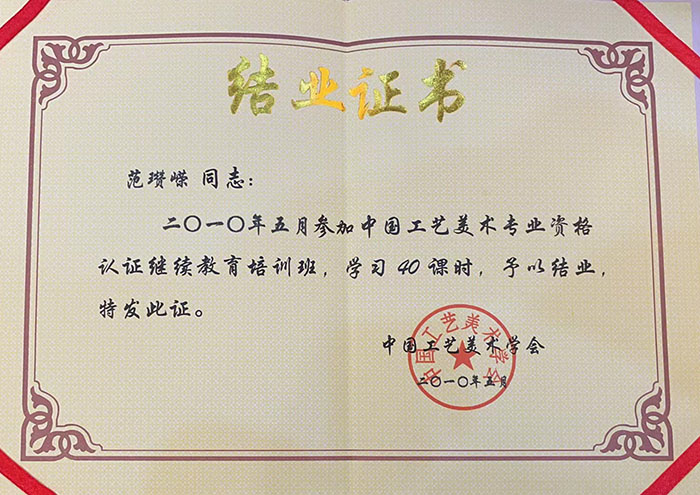 结业证书
范瓒嵘 同志：
二〇一〇年五月参加中国工艺美术专业资格
认证继续教育培训班，学习40课时，予以结业，
特发此证。
中国工艺美术学会
二〇一〇年五月
中国工艺美术学会